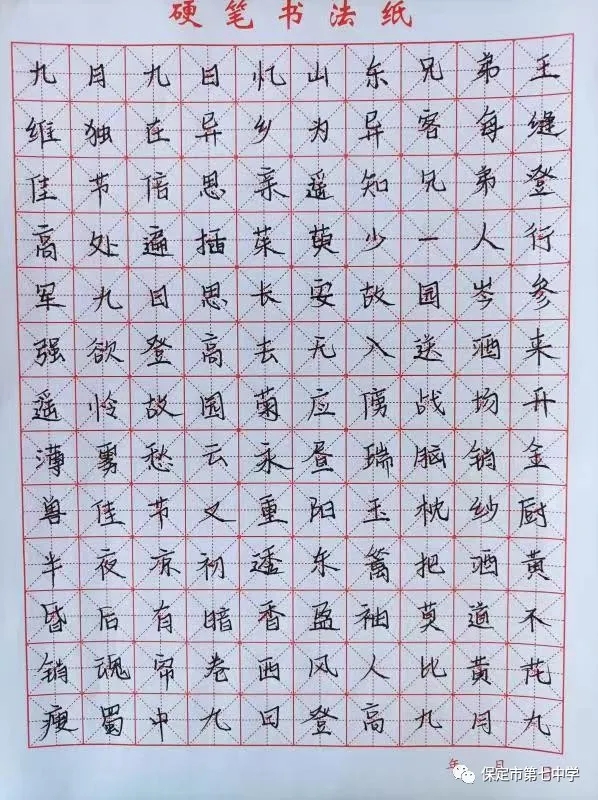 硬笔书法纸
九月九日忆山东兄弟王
维独在异乡为异客每缝
佳节倍思亲遥知兄弟登
高处遍插茱萸少一人行
军九日思长安故园岑参
强欲登高去无人送酒来
遥怜故园菊应傍战场开
薄雾愁云永昼瑞脑销金
兽佳节又重阳玉枕纱厨
半夜凉初透东篱把酒黄
昏后有暗香盈袖莫道不
销魂帘卷西风人比黄花
瘦蜀中九日登高九月九
年 月 日
保定市第七中学